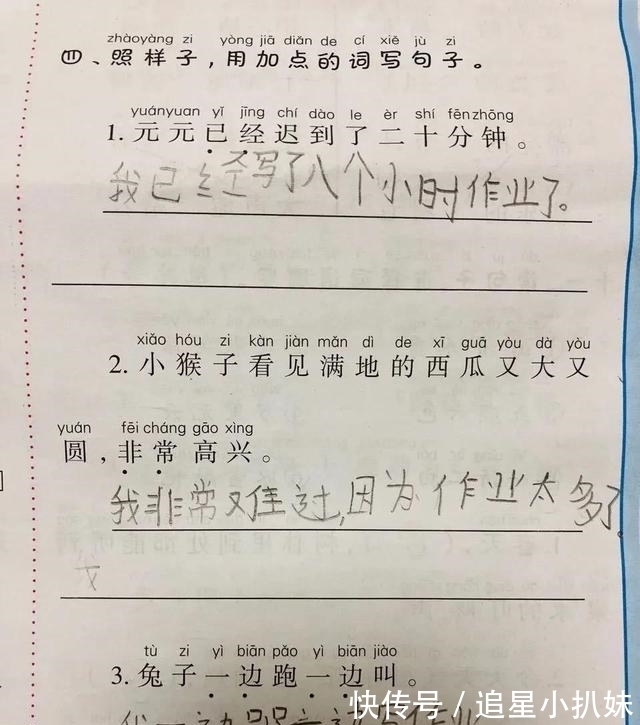 zhàoyàng zi yòng jiā diǎn de cí xiě jù zi
四、照样子,用加点的词写句子。
yuányuan yǐ jīng chí dào le èr shí fēnzhōng
1. 元元已经迟到了二十分钟。
我已经写了八个小时作业了。
xiǎo hóu zi kàn jiàn mǎn dì de xī guā yòu dà yòu
2. 小猴子看见满地的西瓜又大又
yuán fēi cháng gāo xìng
圆,非常高兴。
我非常难过,因为作业太多了
tù zi yì biān pǎo yì biān jiào
3. 兔子一边跑一边叫。
我一边
作业
快传号/追星小扒妹